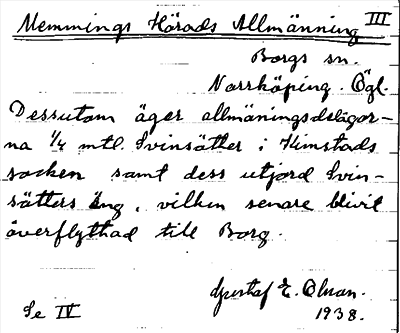 Memmings Härads Allmänning III
Borgs sn.
Norrköping. Ögl.
Dessutom äger allmäningsdelägor-
na 1/4 mtl. Svinsätter i Kimstads
socken samt dess utjord Svin-
sätters äng, vilken senare blivit
överflyttad till Borg.
Gustaf E. Ulman.
1938.
Se IV